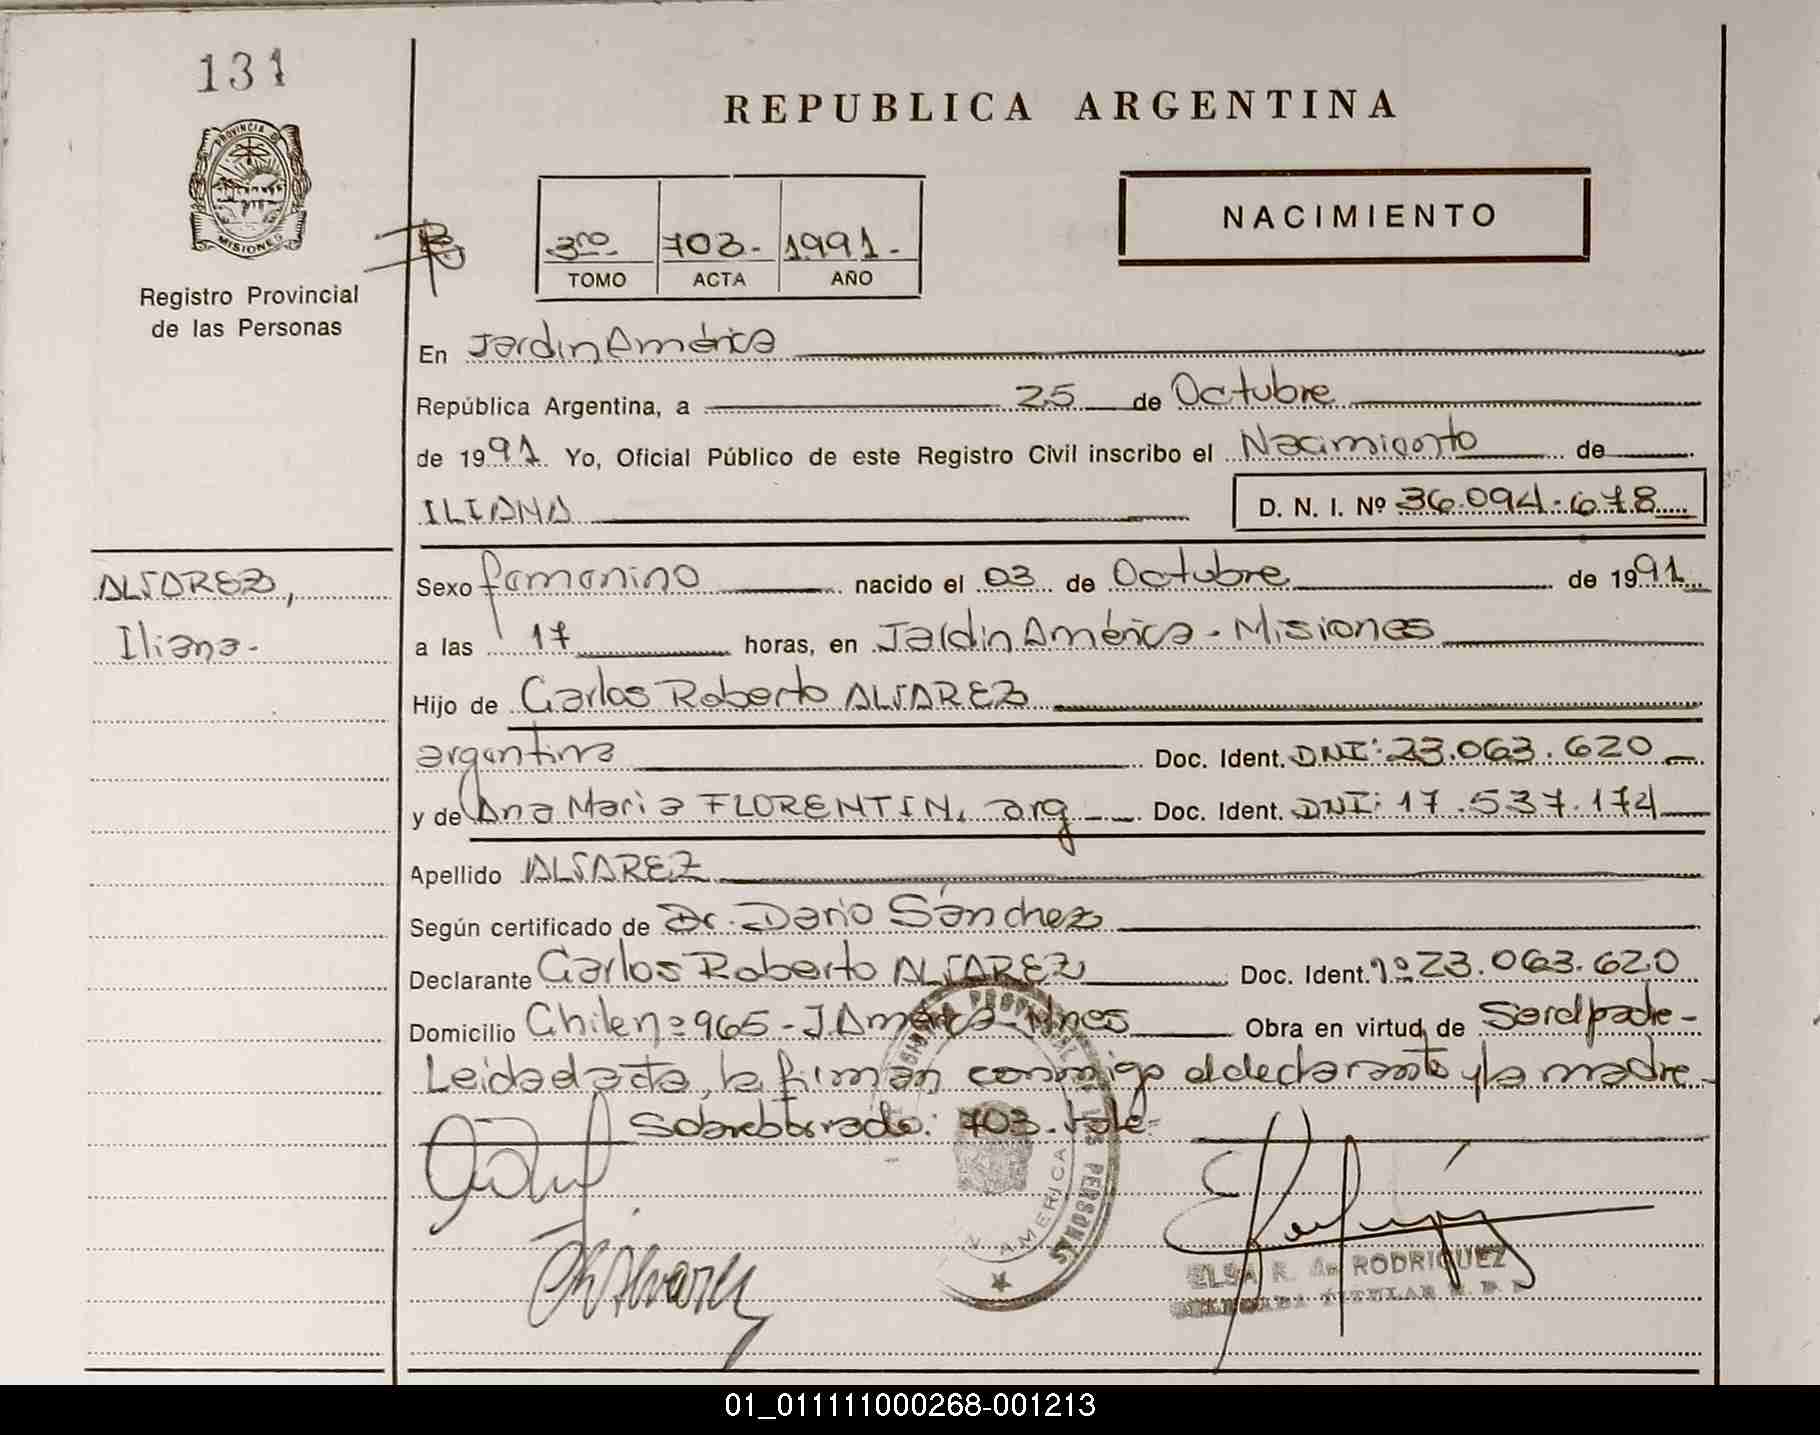 131
PROVINCIA DE
MISIONES
Registro Provincial
de las Personas
REPUBLICA ARGENTINA
NACIMIENTO
3ro 703- 1991-
TOMO ACTA AÑO
En Jardin América
República Argentina, a 25 de Octubre
de 1991 Yo, Oficial Público de este Registro Civil inscribo el Nacimiento de
ILIANA D. N. I. Nº 36.094.678
ALVAREZ,
Iliana-
Sexo femenino nacido el 03 de Octubre de 1991
a las 17 horas, en Jardin América - Misiones
Hijo de Carlos Roberto ALVAREZ
argentina Doc. Ident. DNI: 23.063.620
y de Ana Maria FLORENTIN, arg Doc. Ident. DNI: 17.537.174
Apellido ALVAREZ
Según certificado de Dr. Dario Sánchez
Declarante Carlos Roberto ALVAREZ Doc. Ident. nº 23.063.620
Domicilio Chile nº 965 - J. América - Mnes Obra en virtud de Ser el padre-
Leida el acta, la firman conmigo el declarante y la madre-
Sobreborrado: 703. Vale-
PERSONAS
AMERICA
ELSA R. de RODRIGUEZ
DELEGADA TITULAR R. P. P.
01_011111000268-001213